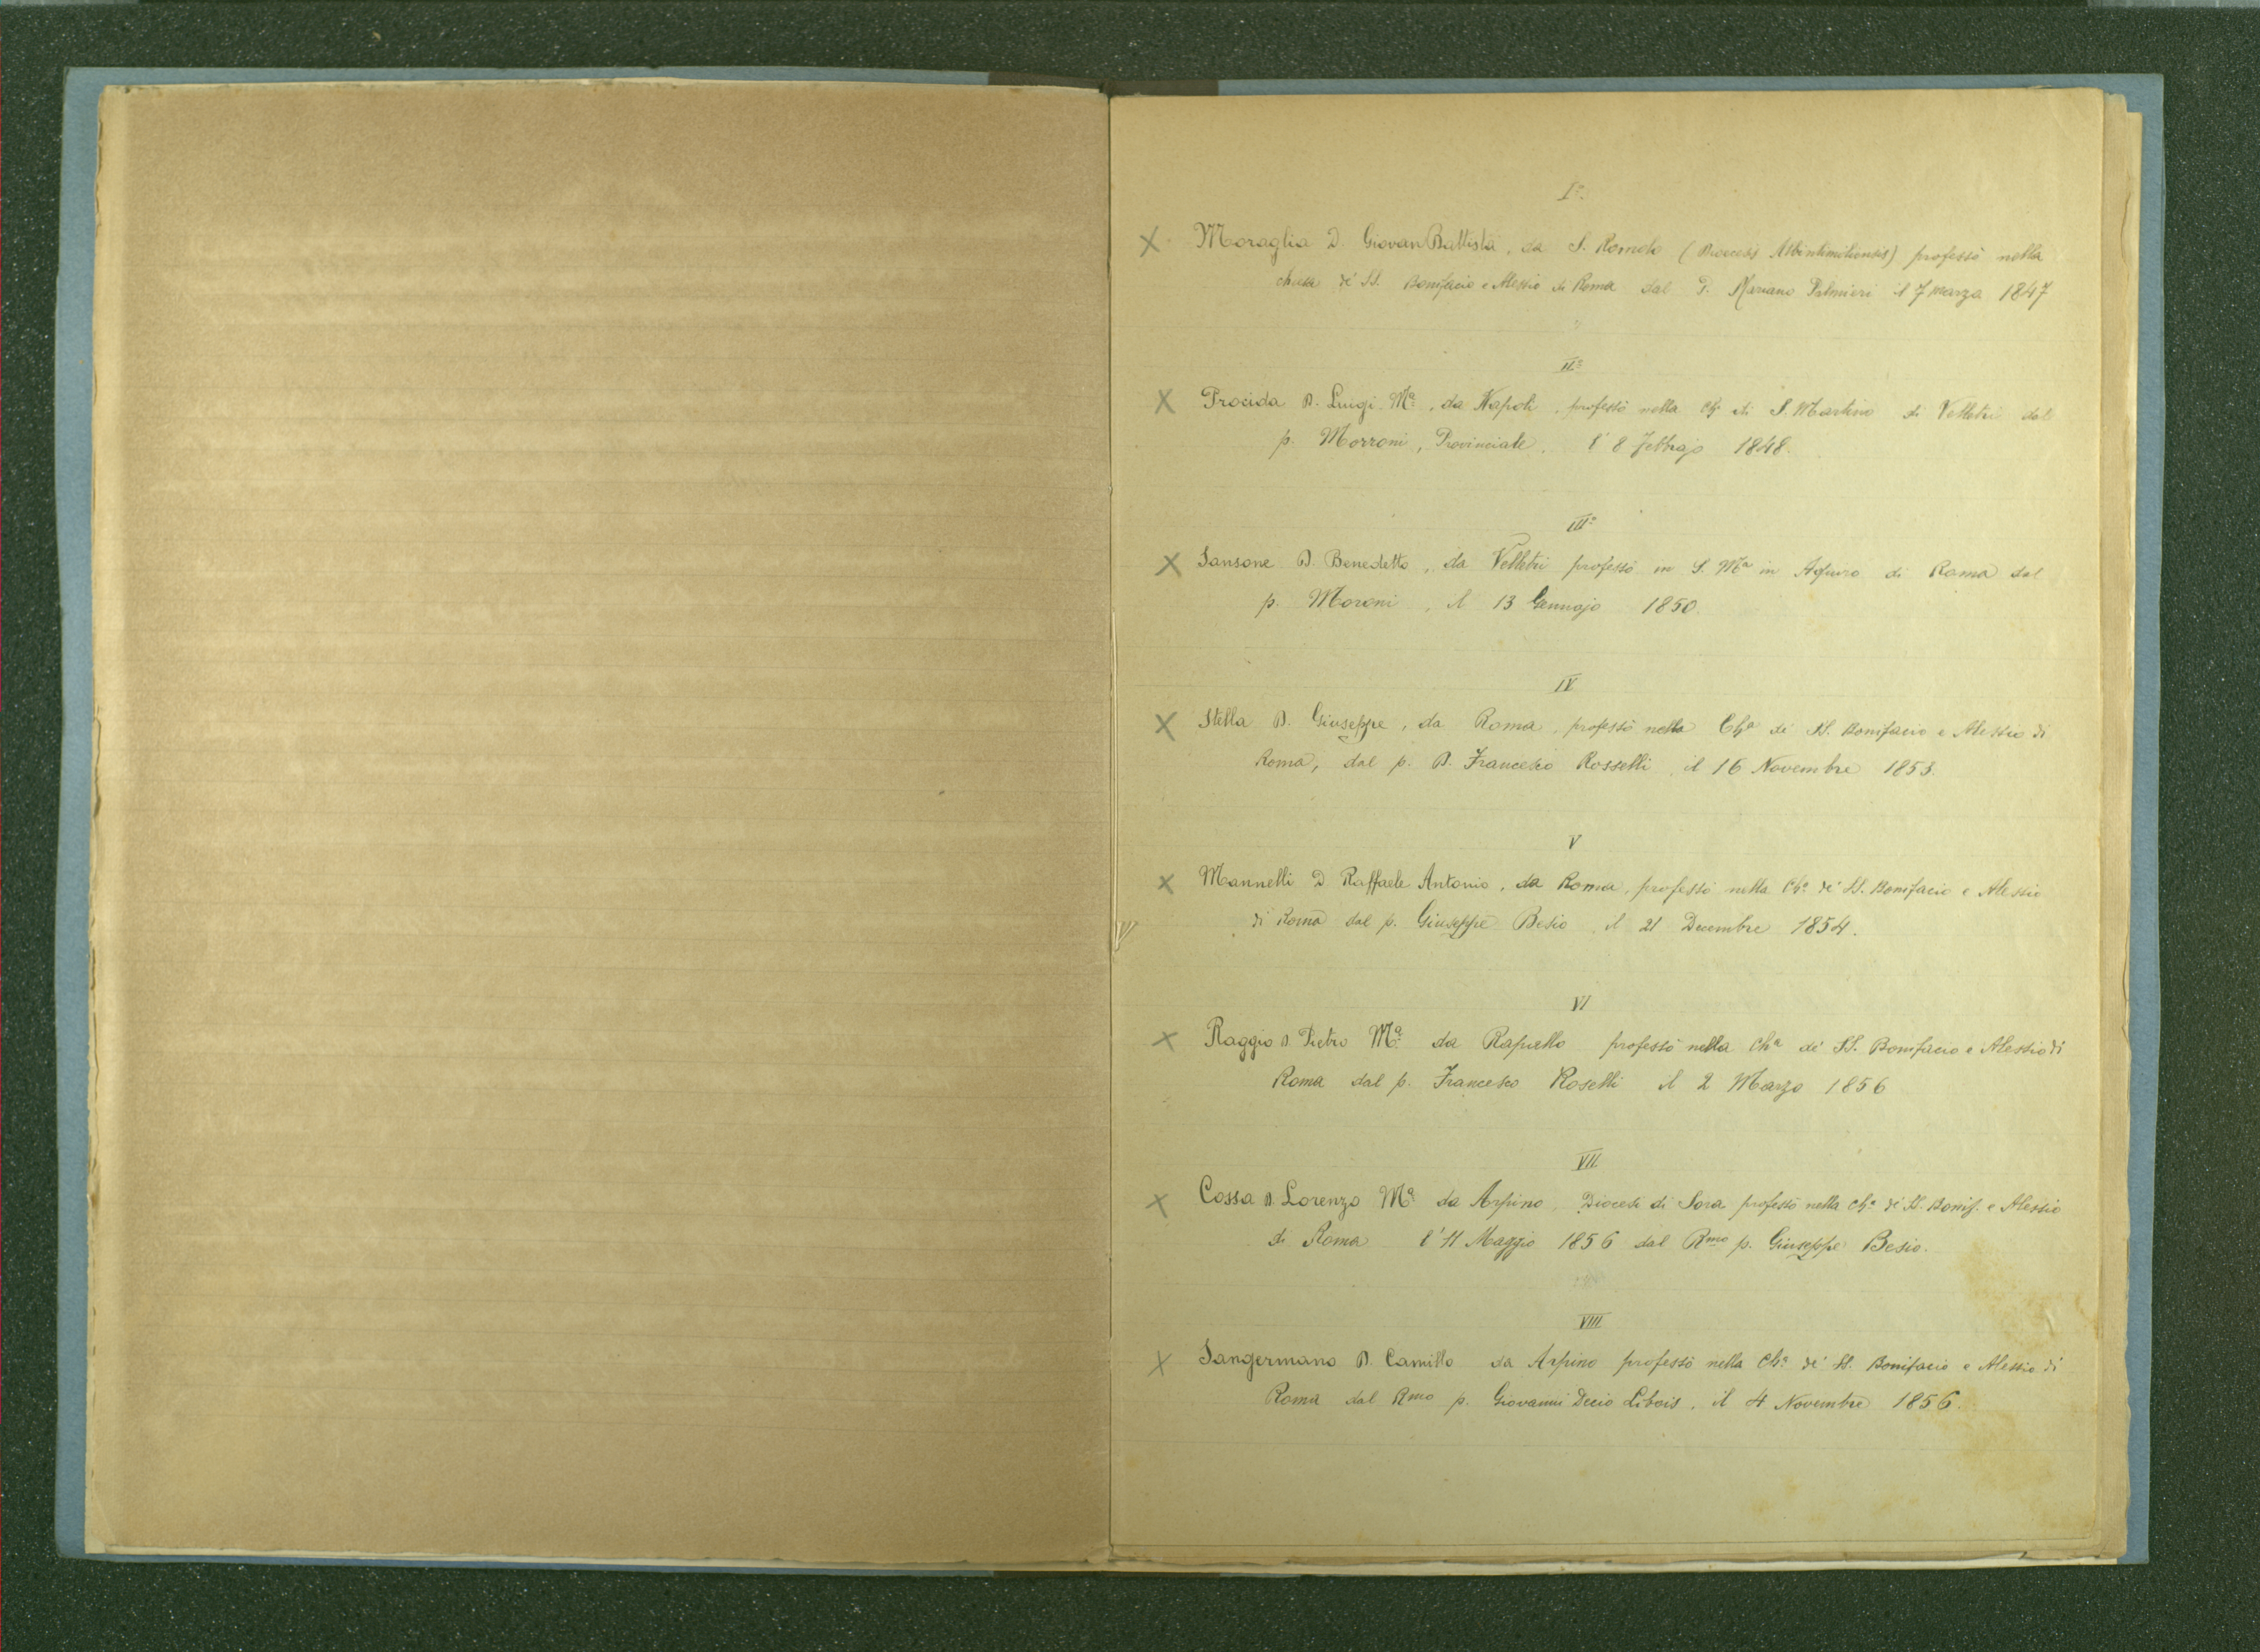 I°.
X Moraglia D. Giovan Battista, da S. Romolo (Diocesis Albintimiliensis) professò nella
chiesa de' SS. Bonifacio e Alessio di Roma dal P. Mariano Palmieri il 7 marzo 1847
II°
X Procida D. Luigi Mª, da Napoli, professò nella Chª di S. Martino di Velletri dal
p. Morroni, Provinciale, l'8 Febbrajo 1848.
III°
X Sansone D. Benedetto, da Velletri professò in S. Mª in Aquiro di Roma dal
p. Moroni, il 13 Gennajo 1850.
IV
X Stella D. Giuseppe, da Roma, professò nella Chª de' SS. Bonifacio e Alessio di
Roma, dal p. D. Francesco Rosselli, il 16 Novembre 1853.
V
X Mannelli D. Raffaele Antonio, da Roma, professò nella Chª de' SS. Bonifacio e Alessio
di Roma dal p. Giuseppe Besio, il 21 Decembre 1854.
VI
X Raggio D. Pietro Mª da Rapallo professò nella Chª de' SS. Bonifacio e Alessio di
Roma dal p. Francesco Roselli il 2 Marzo 1856
VII
X Cossa D. Lorenzo Mª da Arpino, Diocesi di Sora professò nella Chª de' SS. Bonif. e Alessio
di Roma l'11 Maggio 1856 dal Rmo p. Giuseppe Besio.
VIII
X Sangermano D. Camillo da Arpino professò nella Chª de' SS. Bonifacio e Alessio di
Roma dal Rmo p. Giovanni Decio Libois, il 4 Novembre 1856.